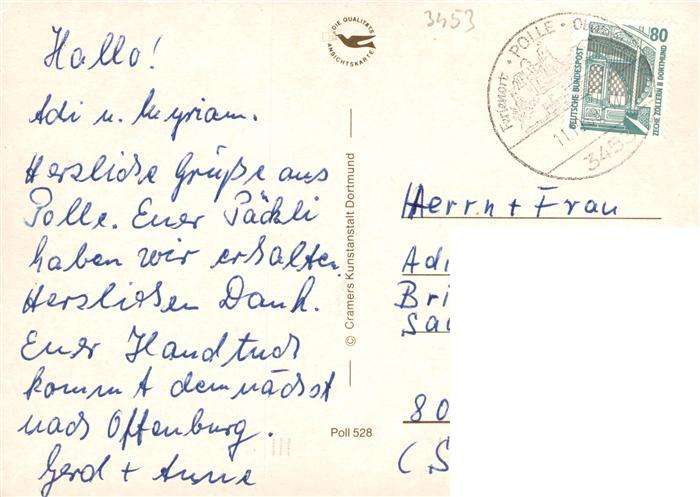 Hallo!
Adi u. Myriam.
Herzliche Grüße aus
Polle. Euer Päckli
haben wir erhalten.
Herzlichen Dank.
Euer Handtuch
kommt demnächst
nach Offenburg.
Gerd + Anne
DIE QUALITÄTS
ANSICHTSKARTE
© Cramers Kunstanstalt Dortmund
Poll 528
3453
Ferienort · POLLE ·
11.
345
80
DEUTSCHE BUNDESPOST
ZECHE ZOLLERN II DORTMUND
Herrn + Frau
Adi
Bri
Sau
80
(S